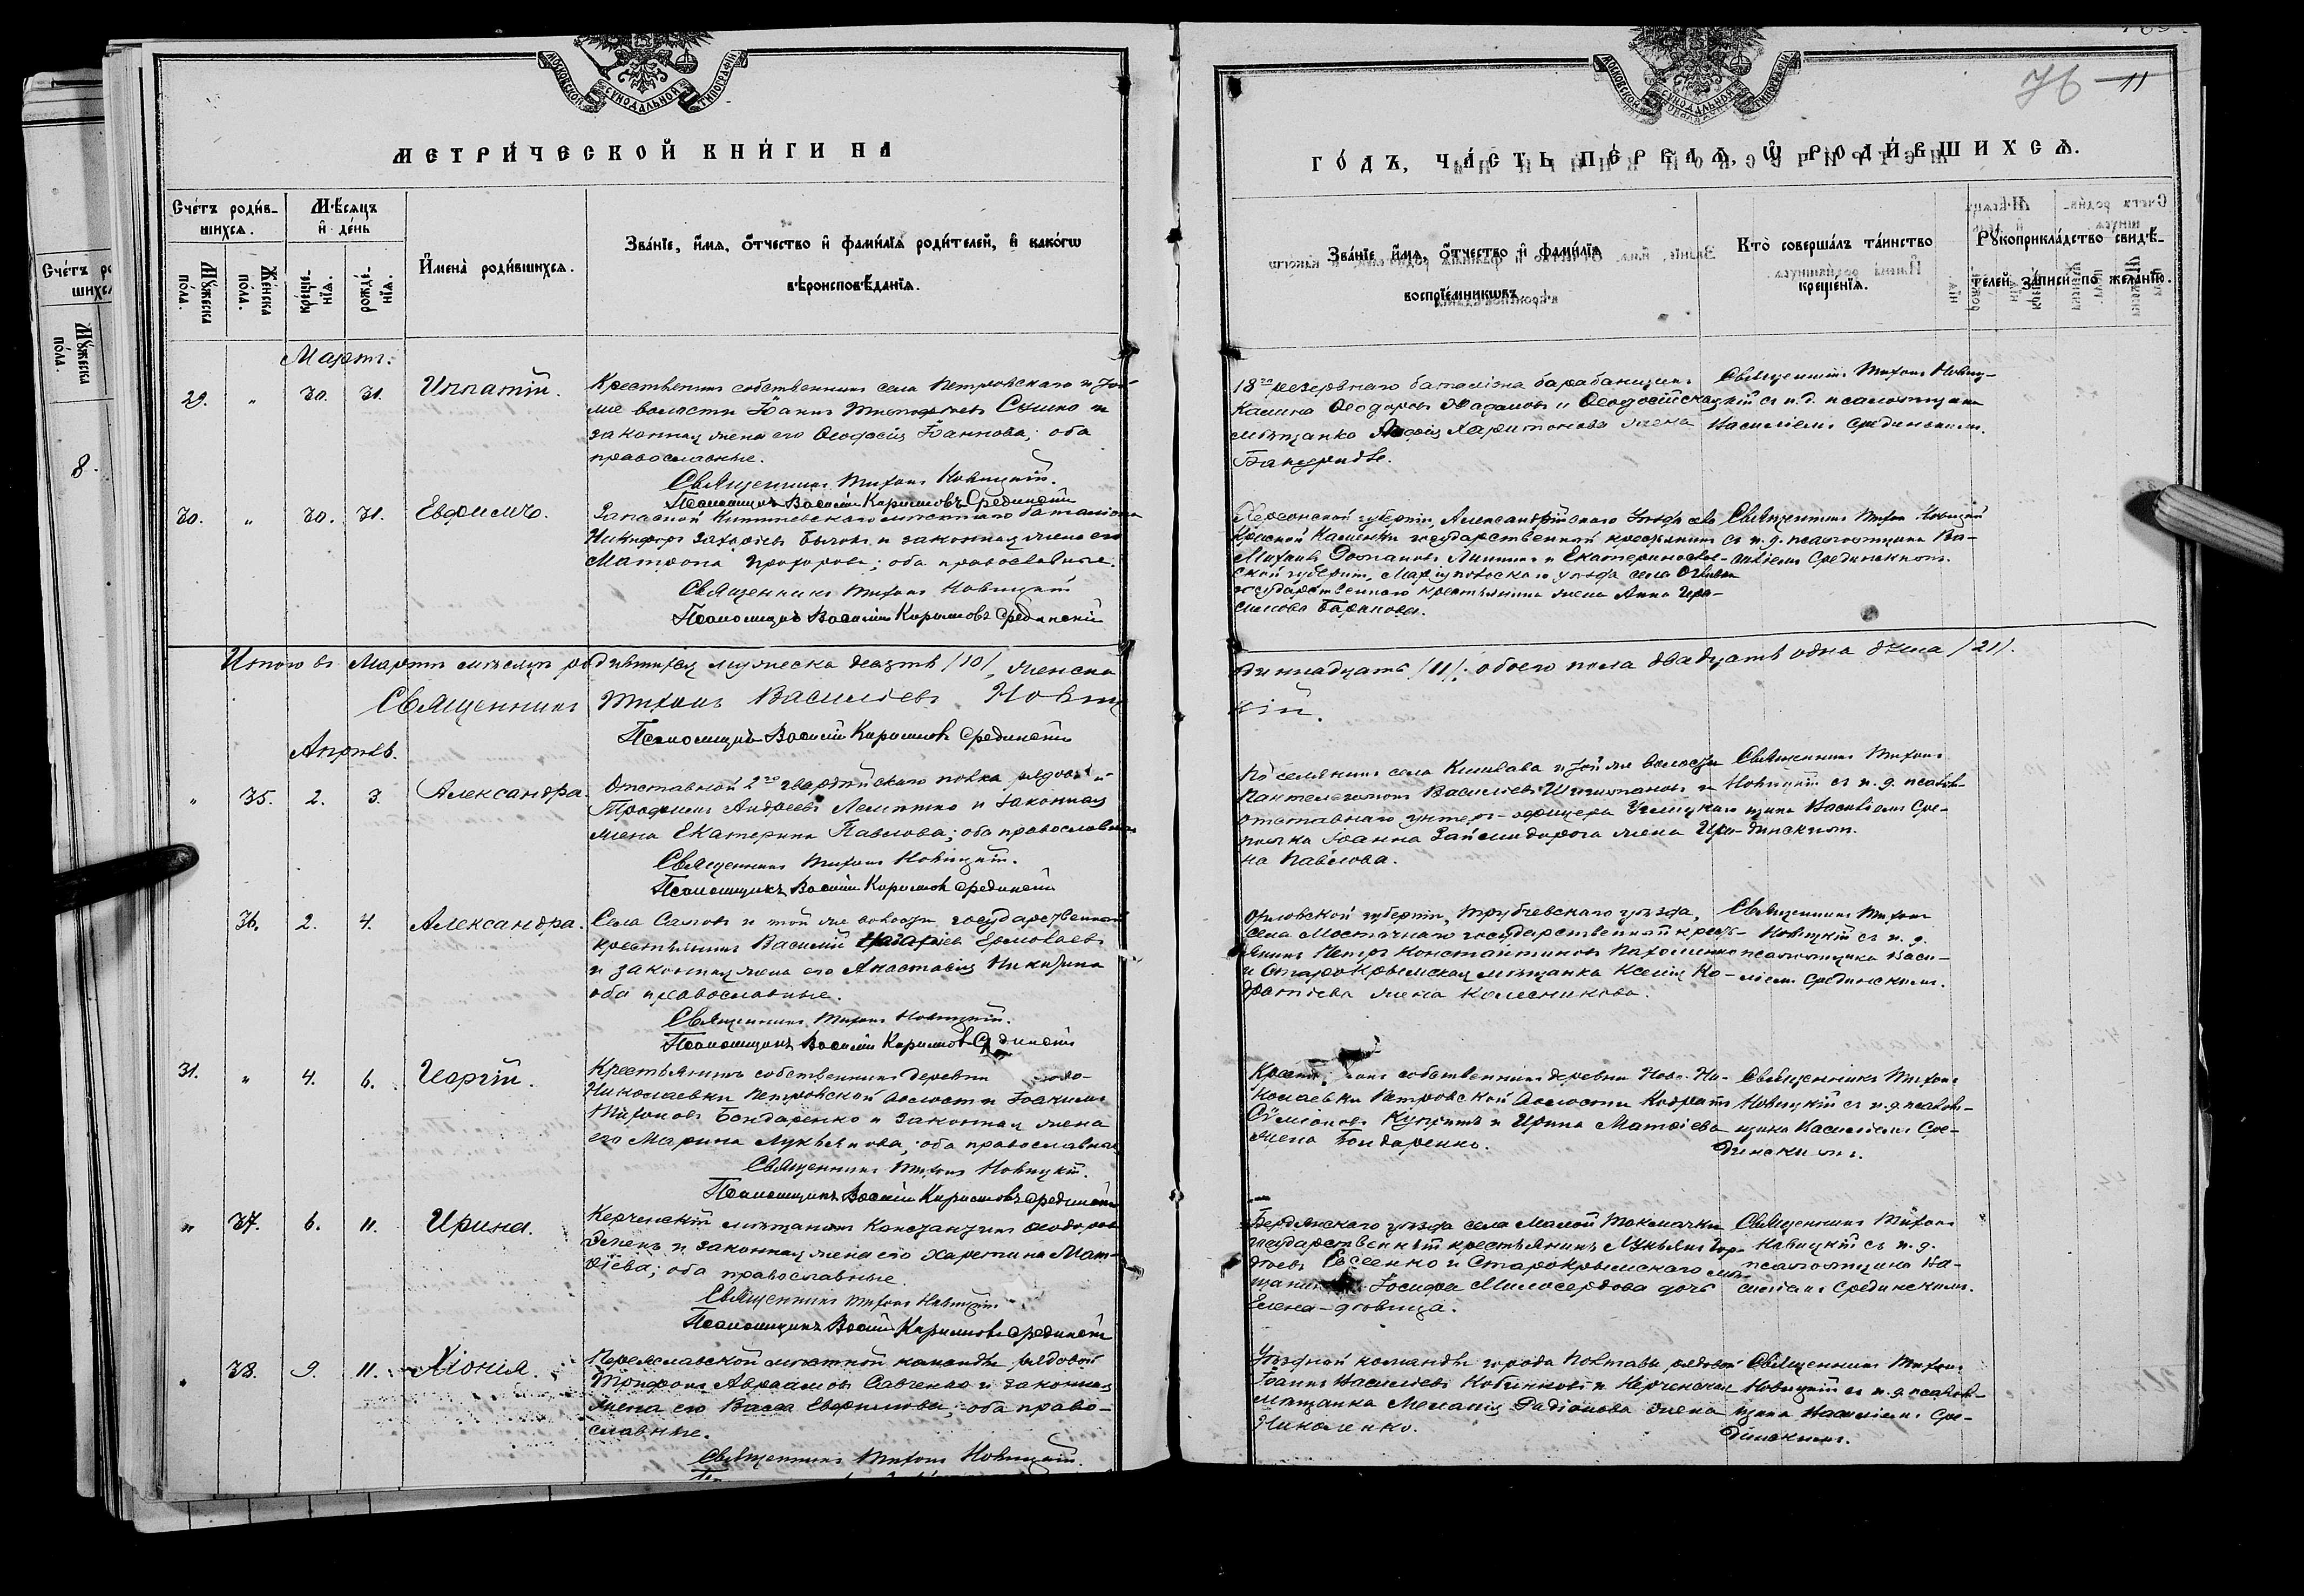 МОСКОВСКОЙ СѴНОДАЛЬНОЙ ТИПОГРАФІИ
МЕТРИ́ЧЕСКОЙ КНИ́ГИ НА
Сче́тъ роди́в-
шихсѧ.
Мѣ́сѧцъ
и҆ де́нь
И҆мена̀ роди́вшихсѧ.
Зва́нїе, и҆́мѧ, ѻ҆́тчество и҆ фами́лїѧ роди́телей, и҆ како́гѡ
вѣроисповѣ́данїѧ.
Мꙋ́жеска
по́ла.
Же́нска
по́ла.
креще́-
нїѧ.
рожде́-
нїѧ.
Мартъ.
29. " 30. 31. Ипатій.
Крестьянинъ собственникъ села Петровскаго и той
же волости Іоаннъ и
законная жена его Ѳеодосія Іоаннова; оба
православные.
Священникъ Тихонъ Новицкій.
Псаломщикъ Василій Кириловъ Срединскій
30. " 30. 31. Евфимъ.
Запасной мѣстнаго баталіона
Никифоръ Захаріевъ и законная жена его
Матрона Прохорова; оба православные.
Священникъ Тихонъ Новицкій
Псаломщикъ Василій Кириловъ Срединскій
Итого въ Мартѣ мѣсяцѣ родившихся мужеска десять /10/, женска
Священникъ Тихонъ Василіевъ Новиц
Псаломщикъ Василій Кириловъ Срединскій
Апрѣль.
" 35. 2. 3. Александра.
Отставной 2го гвардейскаго полка рядовой
Трофимъ Андреевъ и законная
жена Екатерина Павлова; оба православные
Священникъ Тихонъ Новицкій.
Псаломщикъ Василій Кириловъ Срединскій
36. 2. 4. Александра.
Села Саловъ и той же волости государственный
крестьянинъ Василій Ермолаевъ
и законная жена его Анастасія Никитина
оба православные.
Священникъ Тихонъ Новицкій.
Псаломщикъ Василій Кириловъ Срединскій
31. " 4. 6. Георгій.
Крестьянинъ собственникъ деревни Ново-
Николаевки Петровской волости Іоакимъ
Тихоновъ Бондаренко и законная жена
его Марина Лукьянова; оба православные
Священникъ Тихонъ Новицкій.
Псаломщикъ Василій Кириловъ Срединскій
" 37. 6. 11. Ирина.
Керченскій мѣщанинъ Константинъ Ѳеодоровъ
и законная жена его Харитина Мат-
ѳіева; оба православные.
Священникъ Тихонъ Новицкій
Псаломщикъ Василій Кириловъ Срединскій
" 38. 9. 11. Хіонія.
Переяславской мѣстной команды рядовой
Трифонъ Авраамовъ Савченко и законная
жена его Васса Евфимова; оба право-
славные.
Священникъ Тихонъ Новицкій.
76 11
МОСКОВСКОЙ СѴНОДАЛЬНОЙ ТИПОГРАФІИ
ГО́ДЪ, ЧА́СТЬ ПЕ́РВАѦ, Ѡ҆ РОДИ́ВШИХСѦ.
Зва́нїе, и҆́мѧ, ѻ҆́тчество и҆ фами́лїѧ
воспрїе́мникѡвъ.
Кто̀ соверша́лъ та́инство
креще́нїѧ.
Рꙋкоприкла́дство свидѣ́-
телей за́писи по жела́нїю.
18го резервнаго баталіона барабанщикъ
Ѳеодоровъ и Ѳеодосійская
мѣщанка Харитонова жена
Священникъ Тихонъ Новиц-
кій съ и. д. псаломщика
Василіемъ Срединскимъ.
Херсонской губерніи, Александрійскаго уѣзда села
Красной Каменки государственный крестьянинъ
Михаилъ и Екатеринослав-
ской губерніи, Маріупольскаго уѣзда села
государственнаго крестьянина жена Анна Гера-
симова Баранова.
Священникъ Тихонъ Новицкій
съ и. д. псаломщика Ва-
силіемъ Срединскимъ.
одиннадцать /11/; обоего пола двадцать одна душа /21/.
кій.
Поселянинъ села и той же волости
Пантелеимонъ Василіевъ и
отставнаго унтеръ-офицера
полка Іоанна жена Ири-
на Павлова.
Священникъ Тихонъ
Новицкій съ и. д. псалом-
щика Василіемъ Сре-
динскимъ.
Орловской губерніи, Трубчевскаго уѣзда,
села государственный кресть-
янинъ Петръ Константиновъ
и Старокрымская мѣщанка Ксенія Ко-
дратіева жена Колесникова.
Священникъ Тихонъ
Новицкій съ и. д.
псаломщика Васи-
ліемъ Срединскимъ.
собственникъ деревни Ново-Ни-
колаевки Петровской волости Кодратъ
Сѵмеоновъ и Ирина Матѳіева
жена Бондаренко.
Священникъ Тихонъ
Новицкій съ и. д. псалом-
щика Василіемъ Сре-
динскимъ.
Бердянскаго уѣзда села Малой Токмачки
государственный крестьянинъ Лукьянъ
Евсеенко и Старокрымскаго мѣ-
Іосифа Милосердова дочь
Елена-дѣвица.
Священникъ Тихонъ
Новицкій съ и. д.
псаломщика Ва-
силіемъ Срединскимъ.
Уѣздной команды города Полтавы рядовой
Іоаннъ Василіевъ и Керченская
мѣщанка Меланія Родіонова жена
Николенко.
Священникъ Тихонъ
Новицкій съ и. д. псалом-
щика Василіемъ Сре-
динскимъ.
Сче́тъ ро
шихсѧ
Мꙋ́жеска
по́ла.
8.